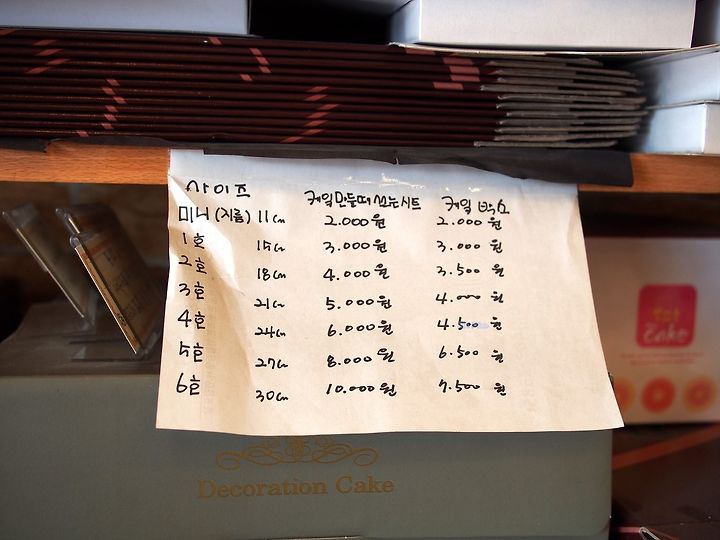 사이즈 케잌만들때 쓰는시트 케잌 박스
미니 (지름) 11cm 2.000원 2.000원
1호 15cm 3.000원 3.000원
2호 18cm 4.000원 3.500원
3호 21cm 5.000원 4.000원
4호 24cm 6.000원 4.500원
5호 27cm 8.000원 6.500원
6호 30cm 10.000원 7.500원
Cake
Decoration Cake